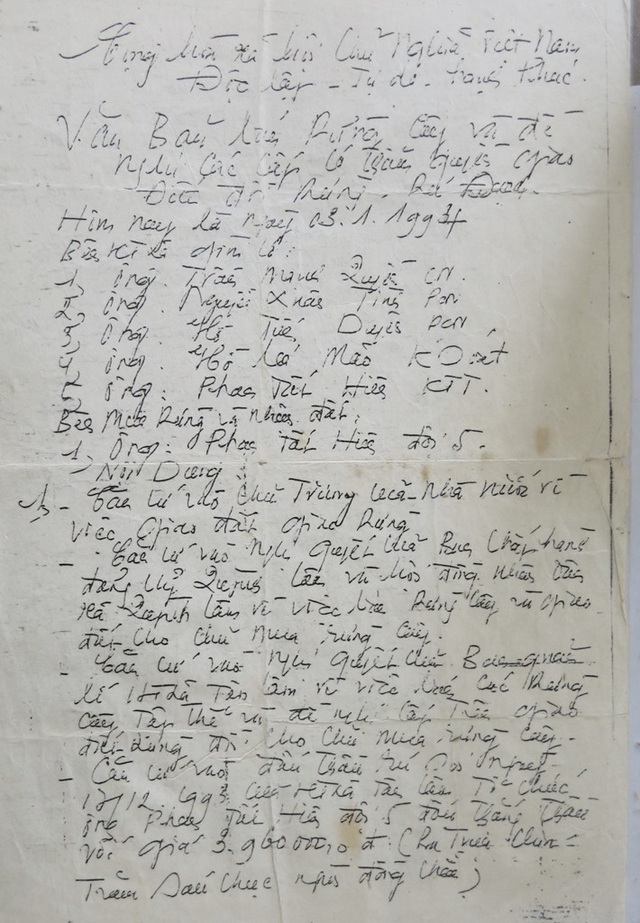 Cộng hòa xã hội Chủ Nghĩa Việt Nam
Độc lập - Tự do - hạnh Phúc.
Văn Bản bán Rừng Cây và đề
Nghị Các Cấp Có thẩm quyền giao
đất
Hôm nay là ngày 03.1.1994
Bên HTX gồm Có:
1, ông. Trần Mạnh Quyết CN.
2, ông. Nguyễn Xuân Tình PCN
3, ông. Hồ Duyên PCN
4, ông. Hồ Mão K Soát
5, ông: Phan Tất Hiên KTT.
Bên Mua Rừng và nhận đất:
1, ông: Phan Tất Hiên đội 5.
Nội Dung
1, - Căn cứ vào Chủ Trương của Nhà nước về
việc giao đất giao Rừng
- Căn cứ vào nghị quyết của Ban Chấp hành
đảng uỷ Quỳnh lâm và hội đồng Nhân dân
xã Quỳnh lâm về việc bán Rừng Cây và giao
đất Cho Chủ Mua rừng Cây.
- Căn cứ vào Nghị quyết của Ban quản
lý HTX Tân lâm về việc bán Các Rừng
Cây Tập Thể và đề nghị Cấp Trên giao
đất Cho Chủ Mua rừng Cây.
- Căn cứ vào đấu thầu ngày
17/12.1993 của HTX Tân lâm Tổ chức
ông Phan Tất Hiên đội 5 đấu thắng thầu
với giá 3.960.000,0 đ (Ba Triệu Chín
Trăm Sáu Chục nghìn đồng Chẵn)